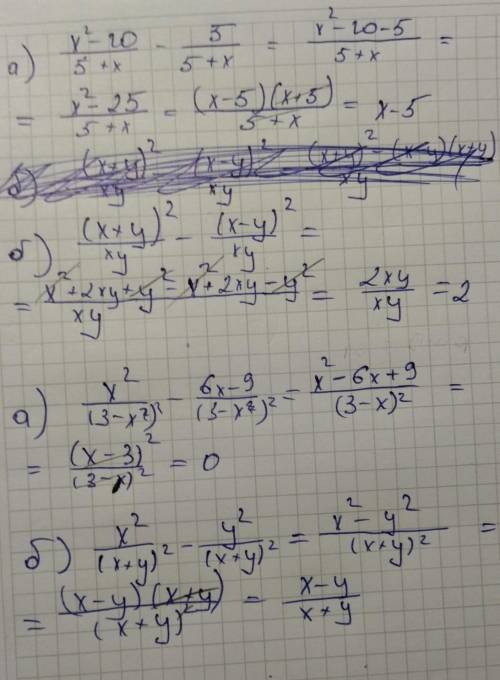 а) (x² - 20)/(5 + x) - 5/(5 + x) = (x² - 20 - 5)/(5 + x) =
= (x² - 25)/(5 + x) = ((x - 5)(x + 5))/(5 + x) = x - 5
б) (x + y)²/xy - (x - y)²/xy =
= (x² + 2xy + y² - x² + 2xy - y²)/xy = 2xy/xy = 2
а) x²/(3 - x)² - (6x - 9)/(3 - x)² = (x² - 6x + 9)/(3 - x)² =
= (x - 3)²/(3 - x)² = 0
б) x²/(x + y)² - y²/(x + y)² = (x² - y²)/(x + y)² =
= ((x - y)(x + y))/(x + y)² = (x - y)/(x + y)